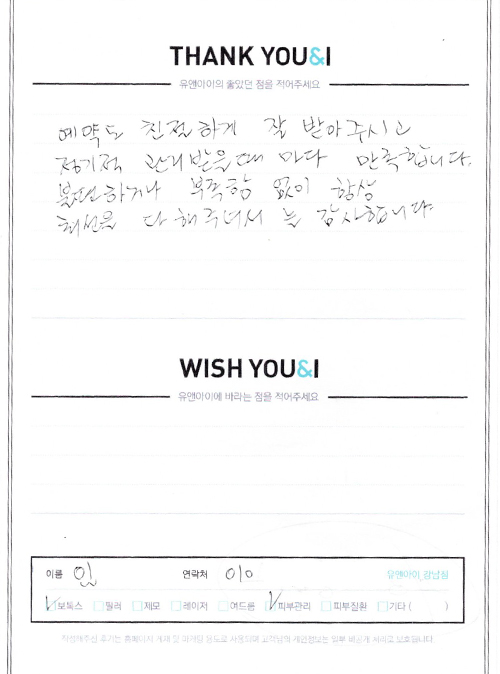 THANK YOU&I
유앤아이의 좋았던 점을 적어주세요
예약도 친절하게 잘 받아주시고
정기적 관리받을때 마다 만족합니다.
불편하거나 부족함 없이 항상
최선을 다해주셔서 늘 감사합니다.
WISH YOU&I
유앤아이에 바라는 점을 적어주세요
이름 연락처 010 유앤아이_강남점
보톡스 필러 제모 레이저 여드름 피부관리 피부질환 기타 ( )
작성해주신 후기는 홈페이지 게재 및 마케팅 용도로 사용되며 고객님의 개인정보는 일부 비공개 처리로 보호됩니다.